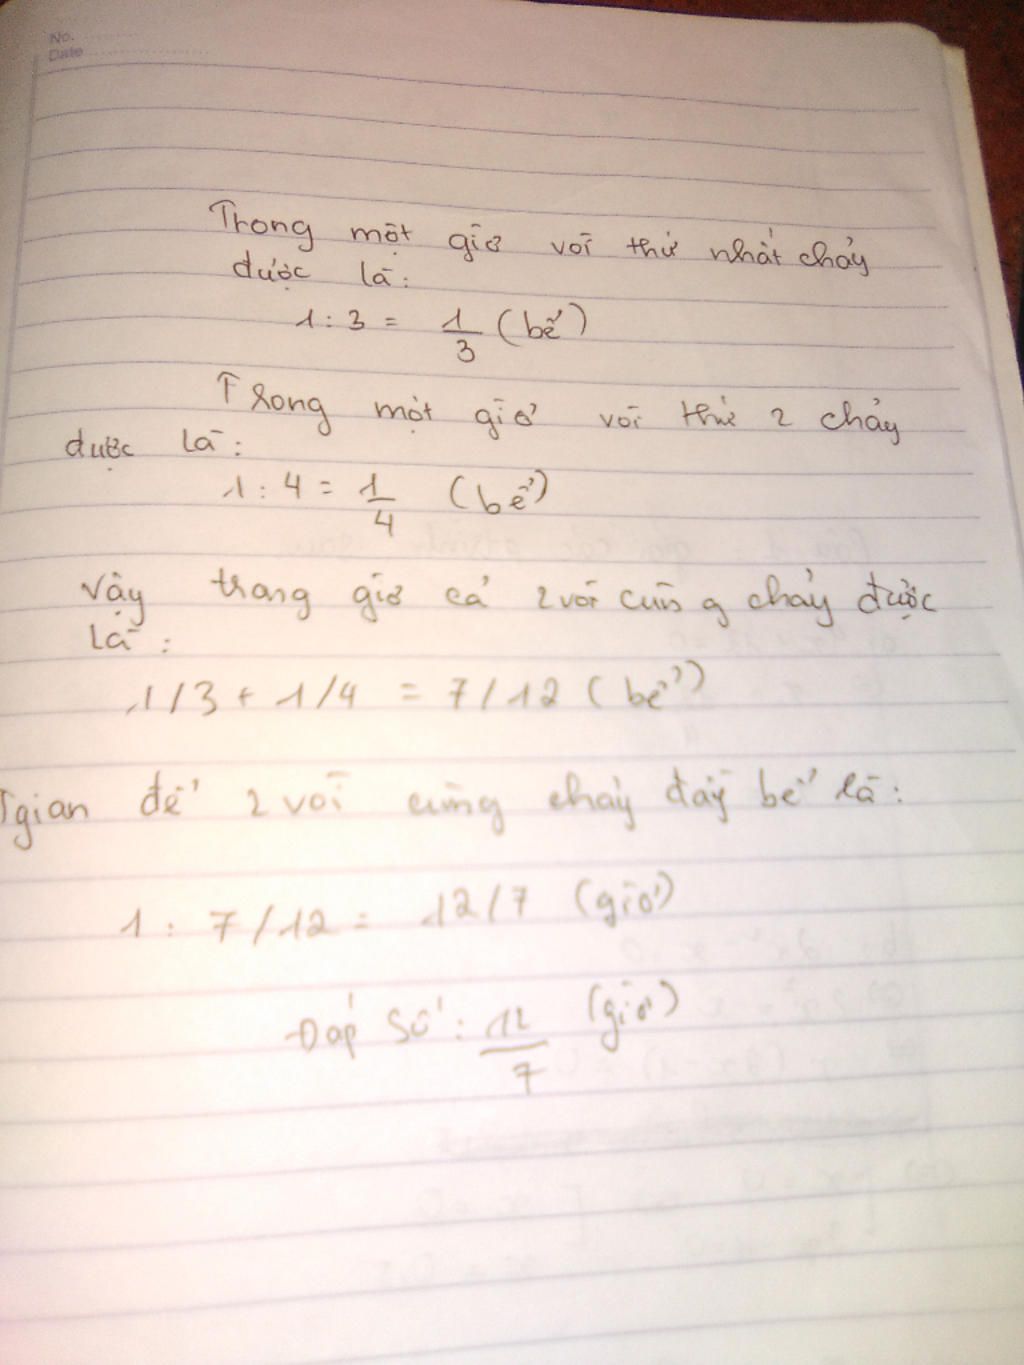 No.
Date
Trong một giờ vòi thứ nhất chảy
được là:
1 : 3 = 1/3 (bể)
Trong một giờ vòi thứ 2 chảy
được là:
1 : 4 = 1/4 (bể)
Vậy trong giờ cả 2 vòi cùng chảy được
là:
1/3 + 1/4 = 7/12 (bể)
Tgian để 2 vòi cùng chảy đầy bể là:
1 : 7/12 = 12/7 (giờ)
Đáp số: 12/7 (giờ)